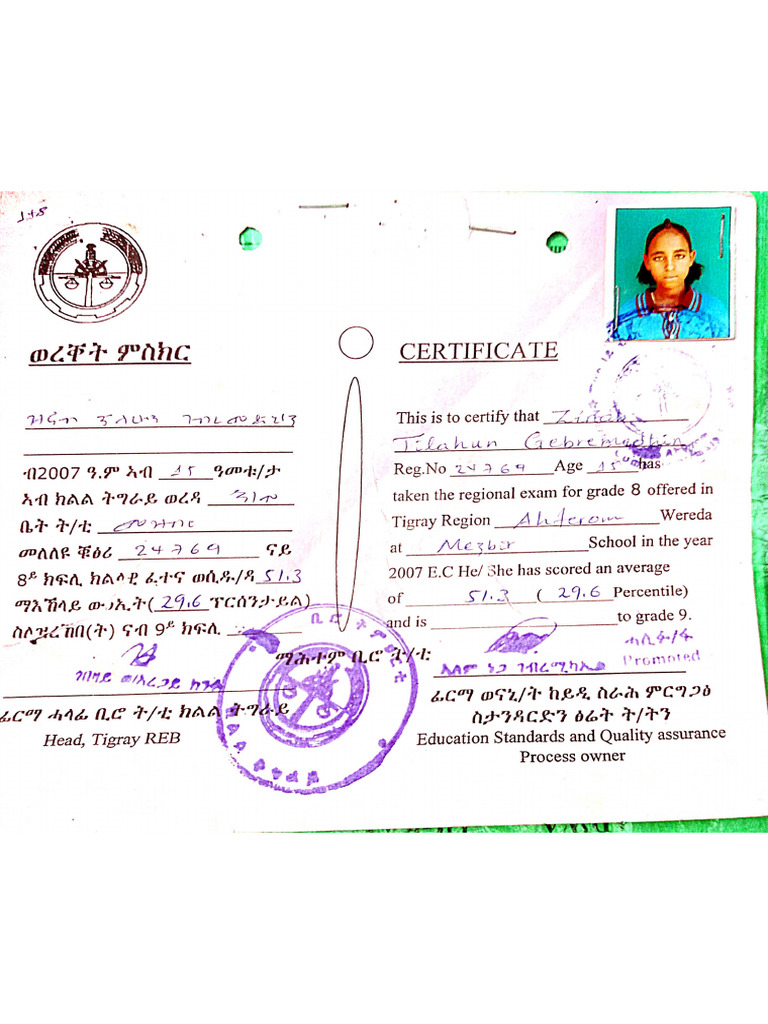 ወረቐት ምስክር
ብ2007 ዓ.ም ኣብ 15 ዓመቱ/ታ
ኣብ ክልል ትግራይ ወረዳ
ቤት ት/ቲ መዝብር
መለለዩ ቑፅሪ 24769 ናይ
8ይ ክፍሊ ክልላዊ ፈተና ወሲዱ/ዳ 51.3
ማእኸላይ ው/ኢት( 29.6 ፐርሰንታይል)
ስለዝረኸበ(ት) ናብ 9ይ ክፍሊ
ፊርማ ሓላፊ ቢሮ ት/ቲ ክልል ትግራይ
Head, Tigray REB
ማሕተም ቢሮ ት/ቲ
CERTIFICATE
This is to certify that
Tilahun Gebremedhin
Reg.No 24769 Age 15 has
taken the regional exam for grade 8 offered in
Tigray Region Ahferom Wereda
at Mezbir School in the year
2007 E.C He/ She has scored an average
of 51.3 ( 29.6 Percentile)
and is to grade 9.
ሓሊፉ/ፋ
Promoted
ፊርማ ወናኒ/ት ከይዲ ስራሕ ምርግጋፅ
ስታንዳርድን ፅሬት ት/ትን
Education Standards and Quality assurance
Process owner